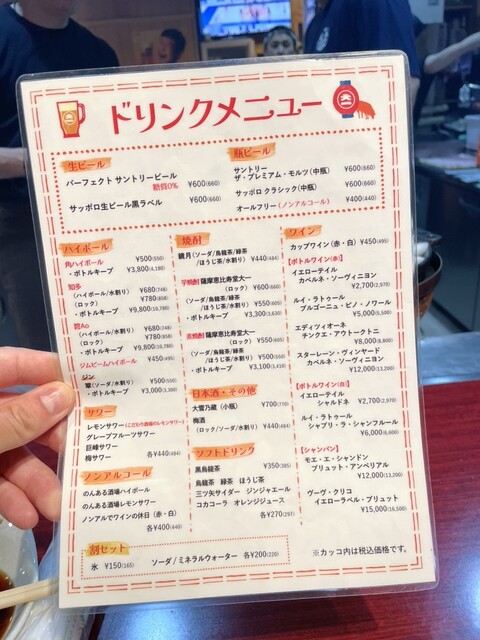 ドリンクメニュー
生ビール
パーフェクト サントリービール
糖質0% ¥600(660)
サッポロ生ビール黒ラベル ¥600(660)
瓶ビール
サントリー
ザ・プレミアム・モルツ(中瓶) ¥600(660)
サッポロ クラシック(中瓶) ¥600(660)
オールフリー(ノンアルコール) ¥400(440)
ハイボール
角ハイボール ¥500(550)
・ボトルキープ ¥3,800(4,180)
知多
(ハイボール/水割り) ¥680(748)
(ロック) ¥780(858)
・ボトルキープ ¥9,800(10,780)
碧Ao
(ハイボール/水割り) ¥680(748)
(ロック) ¥780(858)
・ボトルキープ ¥9,800(10,780)
ジムビームハイボール ¥450(495)
ジン
翠(ソーダ/水割り) ¥500(550)
・ボトルキープ ¥3,000(3,300)
サワー
レモンサワー(こだわり酒場のレモンサワー)
グレープフルーツサワー
巨峰サワー
梅サワー 各¥440(484)
ノンアルコール
のんある酒場ハイボール
のんある酒場レモンサワー
ノンアルでワインの休日(赤・白)
各¥400(440)
焼酎
鏡月(ソーダ/烏龍茶/緑茶
/ほうじ茶/水割り) ¥440(484)
芋焼酎 薩摩恵比寿堂大一
(ロック) ¥600(660)
(ソーダ/烏龍茶/緑茶
/ほうじ茶/水割り) ¥550(605)
・ボトルキープ ¥3,300(3,630)
麦焼酎 薩摩恵比寿堂大一
(ロック) ¥550(605)
(ソーダ/烏龍茶/緑茶
/ほうじ茶/水割り) ¥500(550)
・ボトルキープ ¥3,100(3,410)
日本酒・その他
大雪乃蔵(小瓶) ¥700(770)
梅酒
(ロック/ソーダ/水割り) ¥440(484)
ソフトドリンク
黒烏龍茶 ¥350(385)
烏龍茶 緑茶 ほうじ茶
三ツ矢サイダー ジンジャエール
コカコーラ オレンジジュース
各¥270(297)
ワイン
カップワイン(赤・白) ¥450(495)
【ボトルワイン(赤)】
イエローテイル
カベルネ・ソーヴィニヨン
¥2,700(2,970)
ルイ・ラトゥール
ブルゴーニュ・ピノ・ノワール
¥5,000(5,500)
エディツィオーネ
チンクエ・アウトークトニ
¥8,000(8,800)
スターレーン・ヴィンヤード
カベルネ・ソーヴィニヨン
¥12,000(13,200)
【ボトルワイン(白)】
イエローテイル
シャルドネ ¥2,700(2,970)
ルイ・ラトゥール
シャブリ・ラ・シャンフルール
¥6,000(6,600)
【シャンパン】
モエ・エ・シャンドン
ブリュット・アンペリアル
¥12,000(13,200)
ヴーヴ・クリコ
イエローラベル・ブリュット
¥15,000(16,500)
割セット
氷 ¥150(165) ソーダ/ミネラルウォーター 各¥200(220)
※カッコ内は税込価格です。